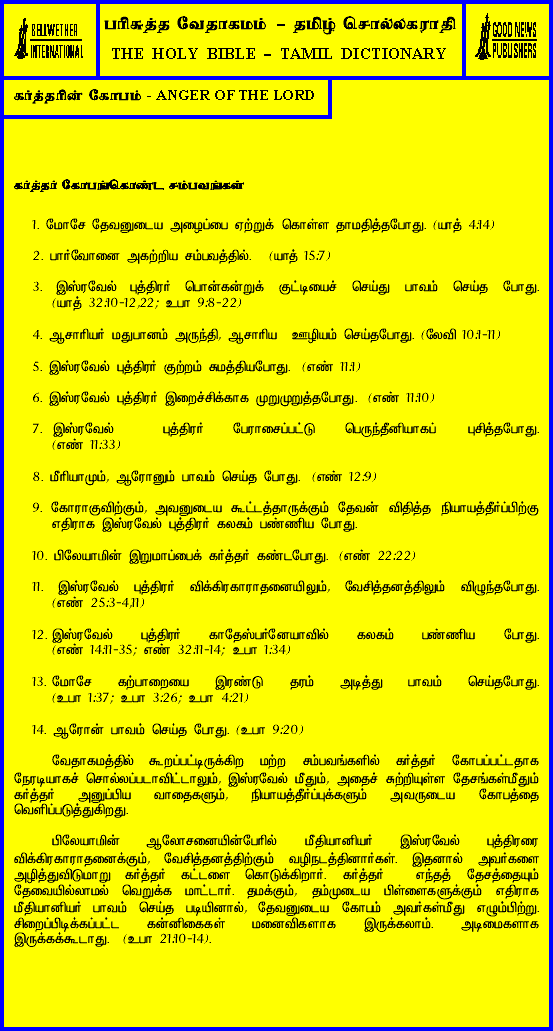 BELLWETHER
INTERNATIONAL
பரிசுத்த வேதாகமம் – தமிழ் சொல்லகராதி
THE HOLY BIBLE – TAMIL DICTIONARY
GOOD NEWS
PUBLISHERS
கர்த்தரின் கோபம் - ANGER OF THE LORD
கர்த்தர் கோபங்கொண்ட சம்பவங்கள்
1. மோசே தேவனுடைய அழைப்பை ஏற்றுக் கொள்ள தாமதித்தபோது. (யாத் 4:14)
2. பார்வோனை அகற்றிய சம்பவத்தில். (யாத் 15:7)
3. இஸ்ரவேல் புத்திரர் பொன்கன்றுக் குட்டியைச் செய்து பாவம் செய்த போது.
(யாத் 32:10-12,22; உபா 9:8-22)
4. ஆசாரியர் மதுபானம் அருந்தி, ஆசாரிய ஊழியம் செய்தபோது. (லேவி 10:1-11)
5. இஸ்ரவேல் புத்திரர் குற்றம் சுமத்தியபோது. (எண் 11:1)
6. இஸ்ரவேல் புத்திரர் இறைச்சிக்காக முறுமுறுத்தபோது. (எண் 11:10)
7. இஸ்ரவேல் புத்திரர் பேராசைப்பட்டு பெருந்தீனியாகப் புசித்தபோது.
(எண் 11:33)
8. மீரியாமும், ஆரோனும் பாவம் செய்த போது. (எண் 12:9)
9. கோராகுவிற்கும், அவனுடைய கூட்டத்தாருக்கும் தேவன் விதித்த நியாயத்தீர்ப்பிற்கு
எதிராக இஸ்ரவேல் புத்திரர் கலகம் பண்ணிய போது.
10. பிலேயாமின் இறுமாப்பைக் கர்த்தர் கண்டபோது. (எண் 22:22)
11. இஸ்ரவேல் புத்திரர் விக்கிரகாராதனையிலும், வேசித்தனத்திலும் விழுந்தபோது.
(எண் 25:3-4,11)
12. இஸ்ரவேல் புத்திரர் காதேஸ்பர்னேயாவில் கலகம் பண்ணிய போது.
(எண் 14:11-35; எண் 32:11-14; உபா 1:34)
13. மோசே கற்பாறையை இரண்டு தரம் அடித்து பாவம் செய்தபோது.
(உபா 1:37; உபா 3:26; உபா 4:21)
14. ஆரோன் பாவம் செய்த போது. (உபா 9:20)
வேதாகமத்தில் கூறப்பட்டிருக்கிற மற்ற சம்பவங்களில் கர்த்தர் கோபப்பட்டதாக
நேரடியாகச் சொல்லப்படாவிட்டாலும், இஸ்ரவேல் மீதும், அதைச் சுற்றியுள்ள தேசங்கள்மீதும்
கர்த்தர் அனுப்பிய வாதைகளும், நியாயத்தீர்ப்புக்களும் அவருடைய கோபத்தை
வெளிப்படுத்துகிறது.
பிலேயாமின் ஆலோசனையின்பேரில் மீதியானியர் இஸ்ரவேல் புத்திரரை
விக்கிரகாராதனைக்கும், வேசித்தனத்திற்கும் வழிநடத்தினார்கள். இதனால் அவர்களை
அழித்துவிடுமாறு கர்த்தர் கட்டளை கொடுக்கிறார். கர்த்தர் எந்தத் தேசத்தையும்
தேவையில்லாமல் வெறுக்க மாட்டார். தமக்கும், தம்முடைய பிள்ளைகளுக்கும் எதிராக
மீதியானியர் பாவம் செய்த படியினால், தேவனுடைய கோபம் அவர்கள்மீது எழும்பிற்று.
சிறைப்பிடிக்கப்பட்ட கன்னிகைகள் மனைவிகளாக இருக்கலாம். அடிமைகளாக
இருக்கக்கூடாது. (உபா 21:10-14).